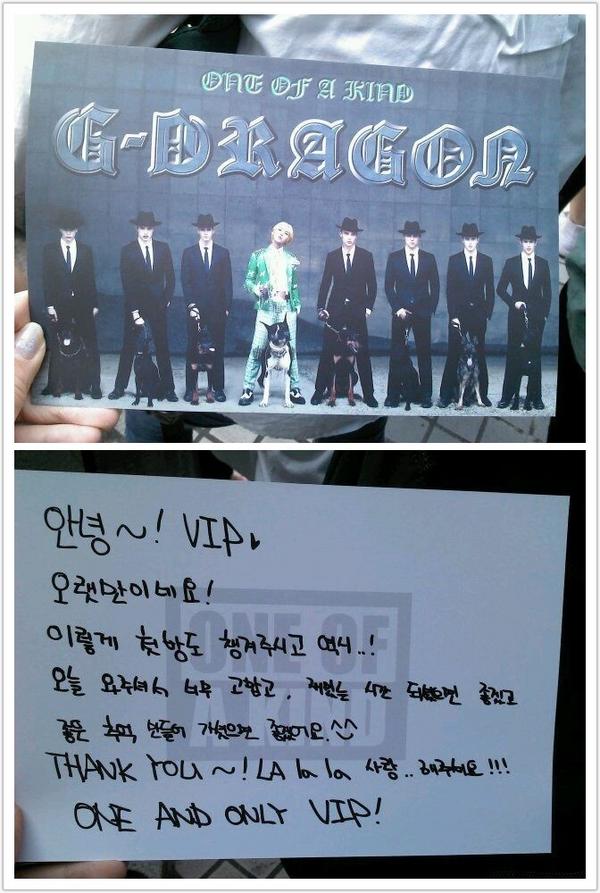 ONE OF A KIND
G-DRAGON
안녕~! VIP♥
오랫만이네요!
이렇게 첫방도 챙겨주시고 역시..!
오늘 와주셔서 너무 고맙고, 재밌는 시간 되셨으면 좋겠고
좋은 추억 만들어 가셨으면 좋겠어요.^^
THANK YOU~! LA la la 사랑..해주셔요!!!
ONE AND ONLY VIP!
ONE OF
A KIND